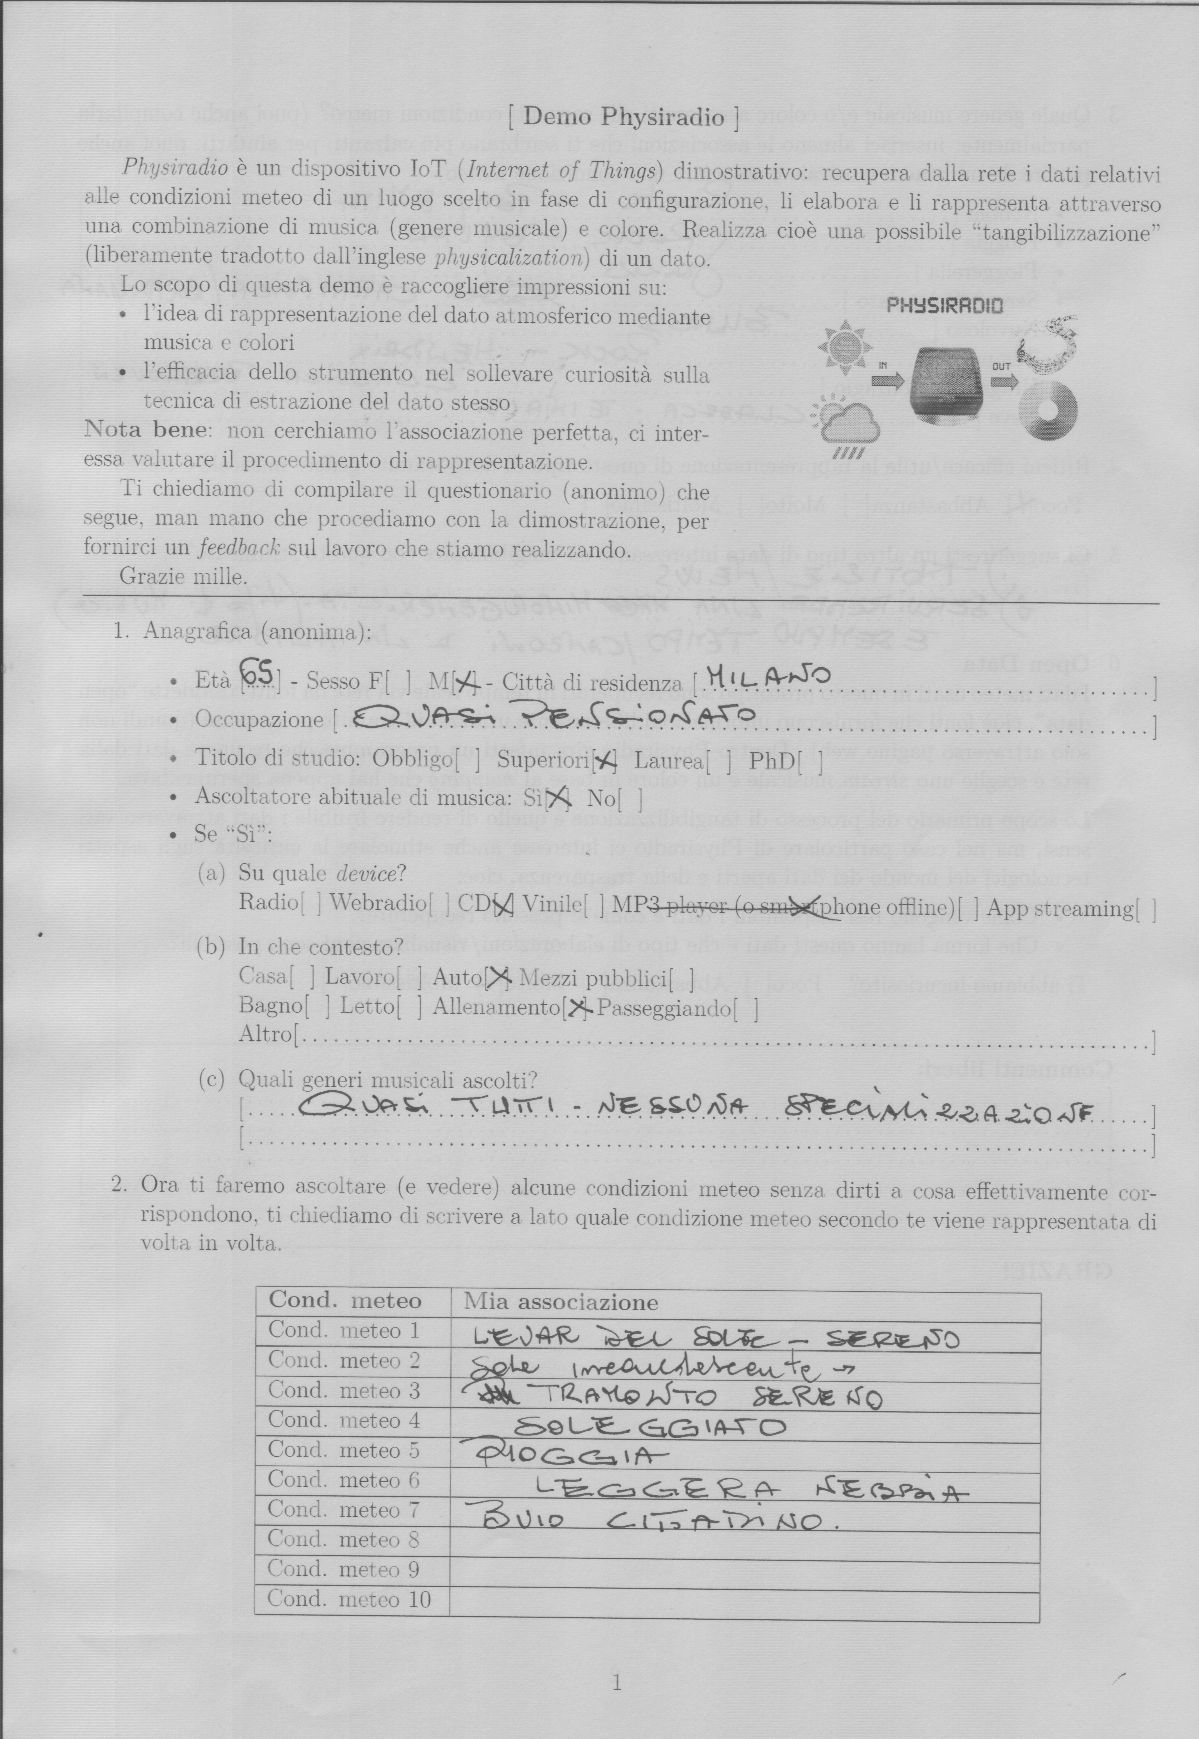 [ Demo Physiradio ]
Physiradio è un dispositivo IoT (Internet of Things) dimostrativo: recupera dalla rete i dati relativi
alle condizioni meteo di un luogo scelto in fase di configurazione, li elabora e li rappresenta attraverso
una combinazione di musica (genere musicale) e colore. Realizza cioè una possibile “tangibilizzazione”
(liberamente tradotto dall'inglese physicalization) di un dato.
Lo scopo di questa demo è raccogliere impressioni su:
• l'idea di rappresentazione del dato atmosferico mediante
musica e colori
• l'efficacia dello strumento nel sollevare curiosità sulla
tecnica di estrazione del dato stesso
PHYSIRADIO
IN
OUT
Nota bene: non cerchiamo l'associazione perfetta, ci inter-
essa valutare il procedimento di rappresentazione.
Ti chiediamo di compilare il questionario (anonimo) che
segue, man mano che procediamo con la dimostrazione, per
fornirci un feedback sul lavoro che stiamo realizzando.
Grazie mille.
1. Anagrafica (anonima):
• Età [65] - Sesso F[ ] M[X] - Città di residenza [MILANO]
• Occupazione [QUASI PENSIONATO]
• Titolo di studio: Obbligo[ ] Superiori[X] Laurea[ ] PhD[ ]
• Ascoltatore abituale di musica: Sì[X] No[ ]
• Se “Sì”:
(a) Su quale device?
Radio[ ] Webradio[ ] CD[X] Vinile[ ] MP3 player (o smartphone offline)[ ] App streaming[ ]
(b) In che contesto?
Casa[ ] Lavoro[ ] Auto[X] Mezzi pubblici[ ]
Bagno[ ] Letto[ ] Allenamento[X] Passeggiando[ ]
Altro[ ]
(c) Quali generi musicali ascolti?
[QUASI TUTTI - NESSUNA SPECIALIZZAZIONE]
[ ]
2. Ora ti faremo ascoltare (e vedere) alcune condizioni meteo senza dirti a cosa effettivamente cor-
rispondono, ti chiediamo di scrivere a lato quale condizione meteo secondo te viene rappresentata di
volta in volta.
Cond. meteo Mia associazione
Cond. meteo 1 LEVAR DEL SOLE - SERENO
Cond. meteo 2 Sole →
Cond. meteo 3 TRAMONTO SERENO
Cond. meteo 4 SOLEGGIATO
Cond. meteo 5 PIOGGIA
Cond. meteo 6 LEGGERA NEBBIA
Cond. meteo 7 BUIO CITTADINO.
Cond. meteo 8
Cond. meteo 9
Cond. meteo 10
1